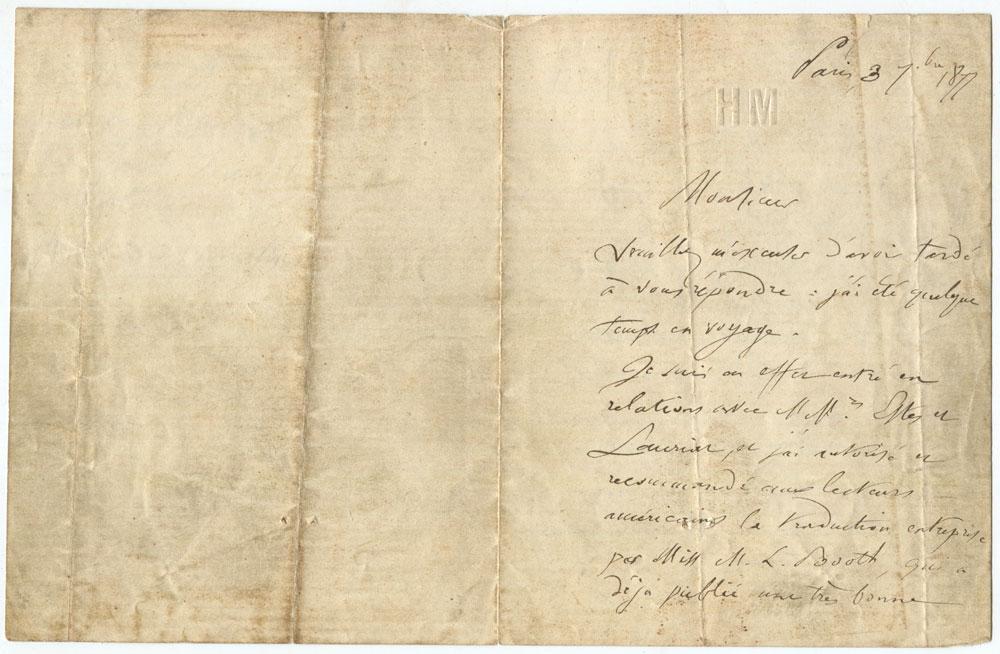 Paris, 3 7bre 1877
HM
Monsieur
Veuillez m'excuser d'avoir tardé
à vous répondre : j'ai été quelque
temps en voyage.
Je suis en effet entré en
relations avec MM.rs Estes et
Lauriat, et j'ai autorisé et
recommandé aux lecteurs
américains la traduction entreprise
par Miss M. L. Booth, qui a
déja publié une très bonne